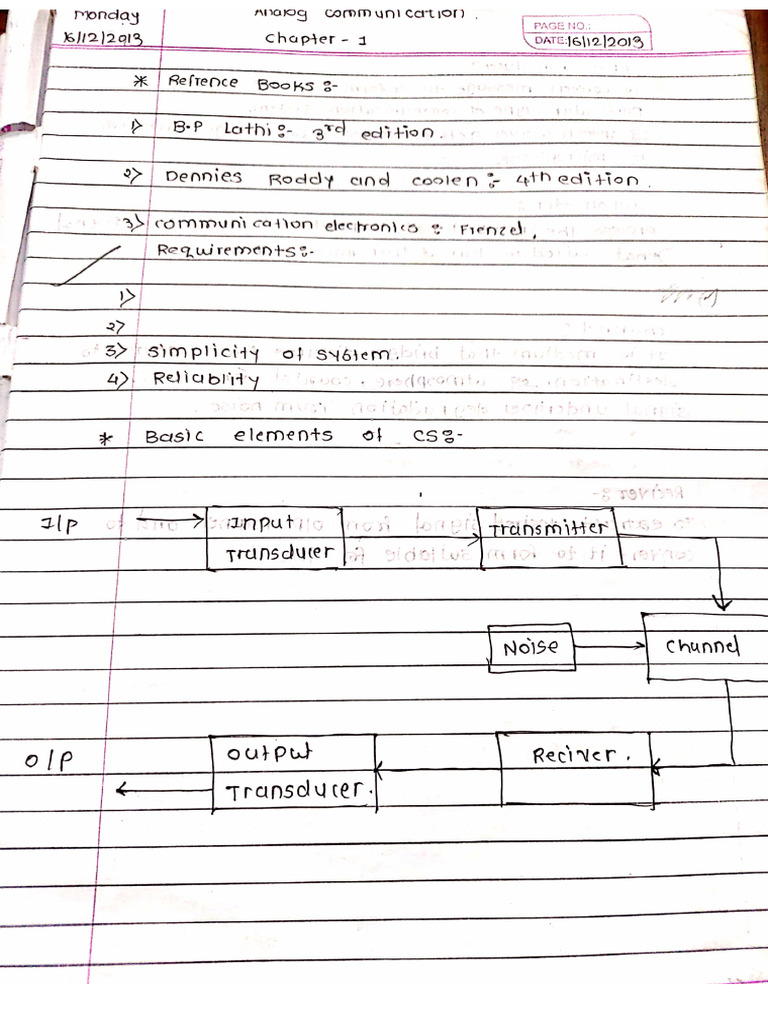 Monday
Analog Communication.
PAGE NO.:
16/12/2013
Chapter - 1
DATE: 16/12/2013
* Refrence Books :-
1) B.P Lathi :- 3rd edition.
2) Dennies Roddy and coolen :- 4th edition.
3) communication electronics :- Frenzel,
Requirements :-
1)
2)
3) Simplicity of system.
4) Reliablity
* Basic elements of CS :-
I/P
Input
Transducer
Transmitter
Noise
Channel
O/P
Output
Transducer.
Reciver.